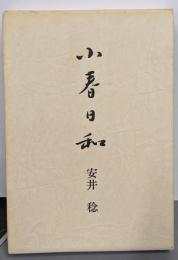 小春日和
安井 稔